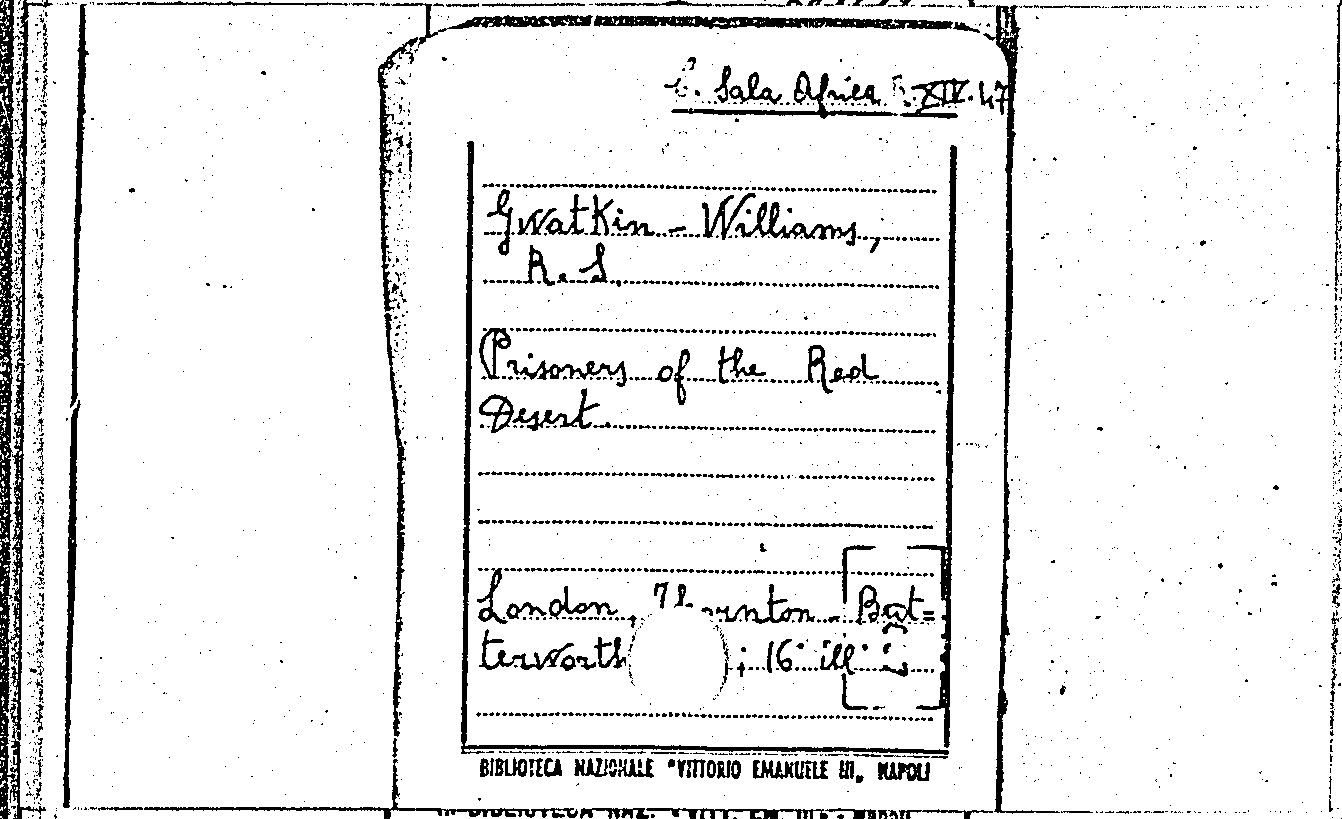 Sala Africa XIV. 47
Gwatkin - Williams,
R. S.
Prisoners of the Red
Desert.
London, Thornton - But=
terworth ; 16° ill.
BIBLIOTECA NAZIONALE "VITTORIO EMANUELE III„ NAPOLI